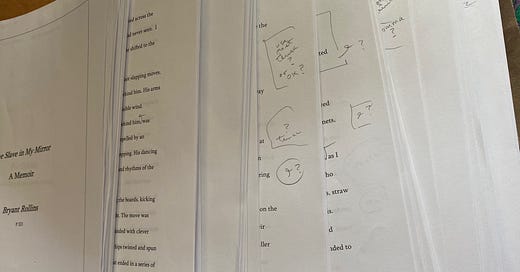 e Slave in My Mirror
A Memoir
Bryant Rollins
ed across the
d never seen. I
r shifted to the
e-slapping moves.
hind him. His arms
sible wind.
hind him, was
pelled by an
pping. His dancing
nd rhythms of the
the boards, kicking
t. The move was
nded with clever
hips twisted and spun
t ended in a series of
the
or OK?
ay
at
?
tense
n
ring
?
on the
eir
ller
ted
?
ved
nets.
?
As I
ho
s, straw
s.
d
nded to
comma
?
?